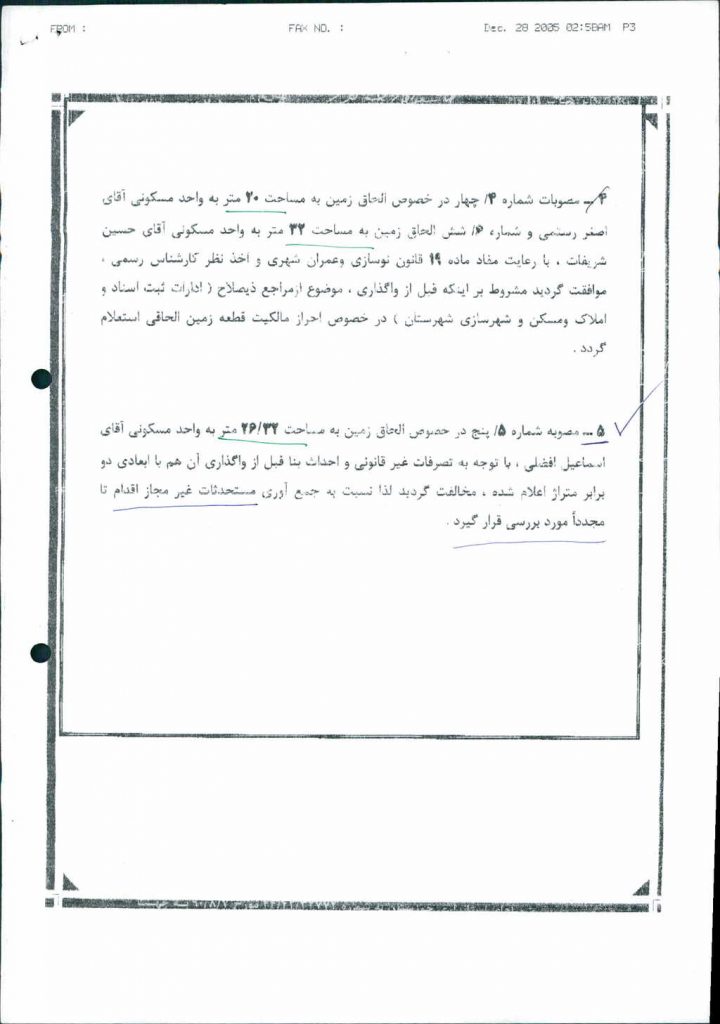 FROM : FAX NO. : Dec. 28 2005 02:58AM P3
۴ـ مصوبات شماره ۴/ چهار در خصوص الحاق زمین به مساحت ۲۰ متر به واحد مسکونی آقای
اصغر رستمی و شماره ۶/ شش الحاق زمین به مساحت ۳۲ متر به واحد مسکونی آقای حسین
شریفات ، با رعایت مفاد ماده ۱۹ قانون نوسازی وعمران شهری و اخذ نظر کارشناس رسمی ،
موافقت گردید مشروط بر اینکه قبل از واگذاری ، موضوع ازمراجع ذیصلاح ( ادارات ثبت اسناد و
املاک ومسکن و شهرسازی شهرستان ) در خصوص احراز مالکیت قطعه زمین الحاقی استعلام
گردد .
۵ ـ مصوبه شماره ۵/ پنج در خصوص الحاق زمین به مساحت ۲۶/۳۲ متر به واحد مسکونی آقای
اسماعیل افضلی ، با توجه به تصرفات غیر قانونی و احداث بنا قبل از واگذاری آن هم با ابعادی دو
برابر متراژ اعلام شده ، مخالفت گردید لذا نسبت به جمع آوری مستحدثات غیر مجاز اقدام تا
مجدداً مورد بررسی قرار گیرد .